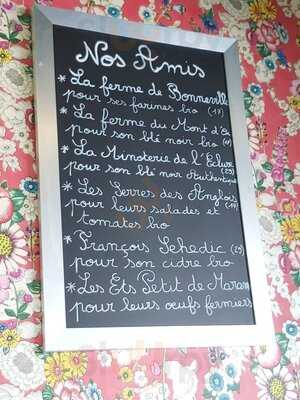 Nos Amis
* La ferme de Bonneville
pour ses farines bio (17)
* La ferme du Mont d'
pour son blé noir bio
* La Minoterie de l'Écluse
pour son blé noir Authentique (29)
* Les Serres des Anglois
pour leurs salades et
tomates bio
* François Sehedic (29)
pour son cidre bio
* Les Ets Petit de Maron
pour leurs œufs fermiers